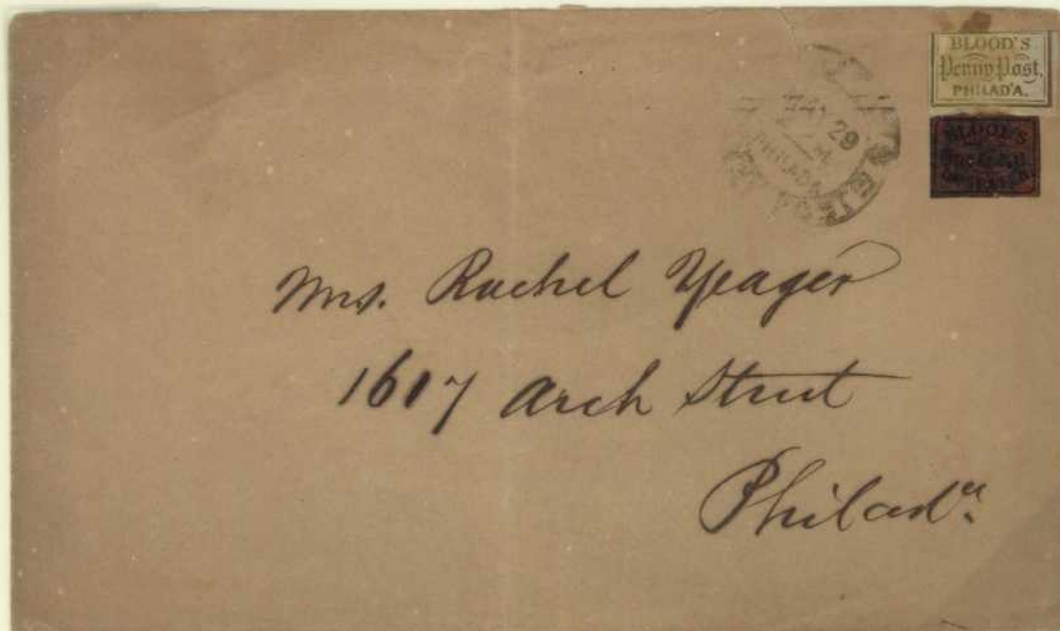 BLOOD'S
Penny Post,
PHILAD'A.
BLOOD'S
29
PHILADA
Mrs. Rachel Yeager
1617 Arch Street
Philad^a.